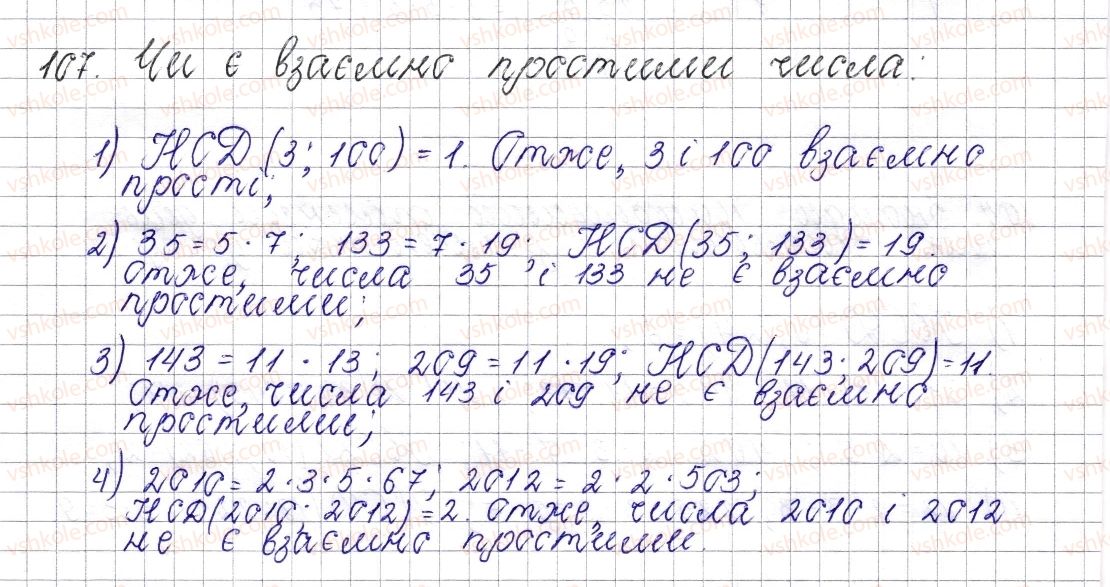 107. Чи є взаємно простими числа:
1) НСД (3; 100) = 1. Отже, 3 і 100 взаємно
прості;
2) 35 = 5 · 7; 133 = 7 · 19; НСД (35; 133) = 19.
Отже, числа 35 і 133 не є взаємно
простими;
3) 143 = 11 · 13; 209 = 11 · 19; НСД (143; 209) = 11.
Отже, числа 143 і 209 не є взаємно
простими;
4) 2010 = 2 · 3 · 5 · 67; 2012 = 2 · 2 · 503;
НСД (2010; 2012) = 2. Отже, числа 2010 і 2012
не є взаємно простими.